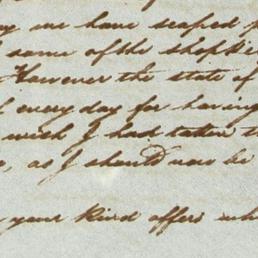 we have seafed
some of the shop
However the state of
every day for having
wish I had taken
as I should now be
your kind offers